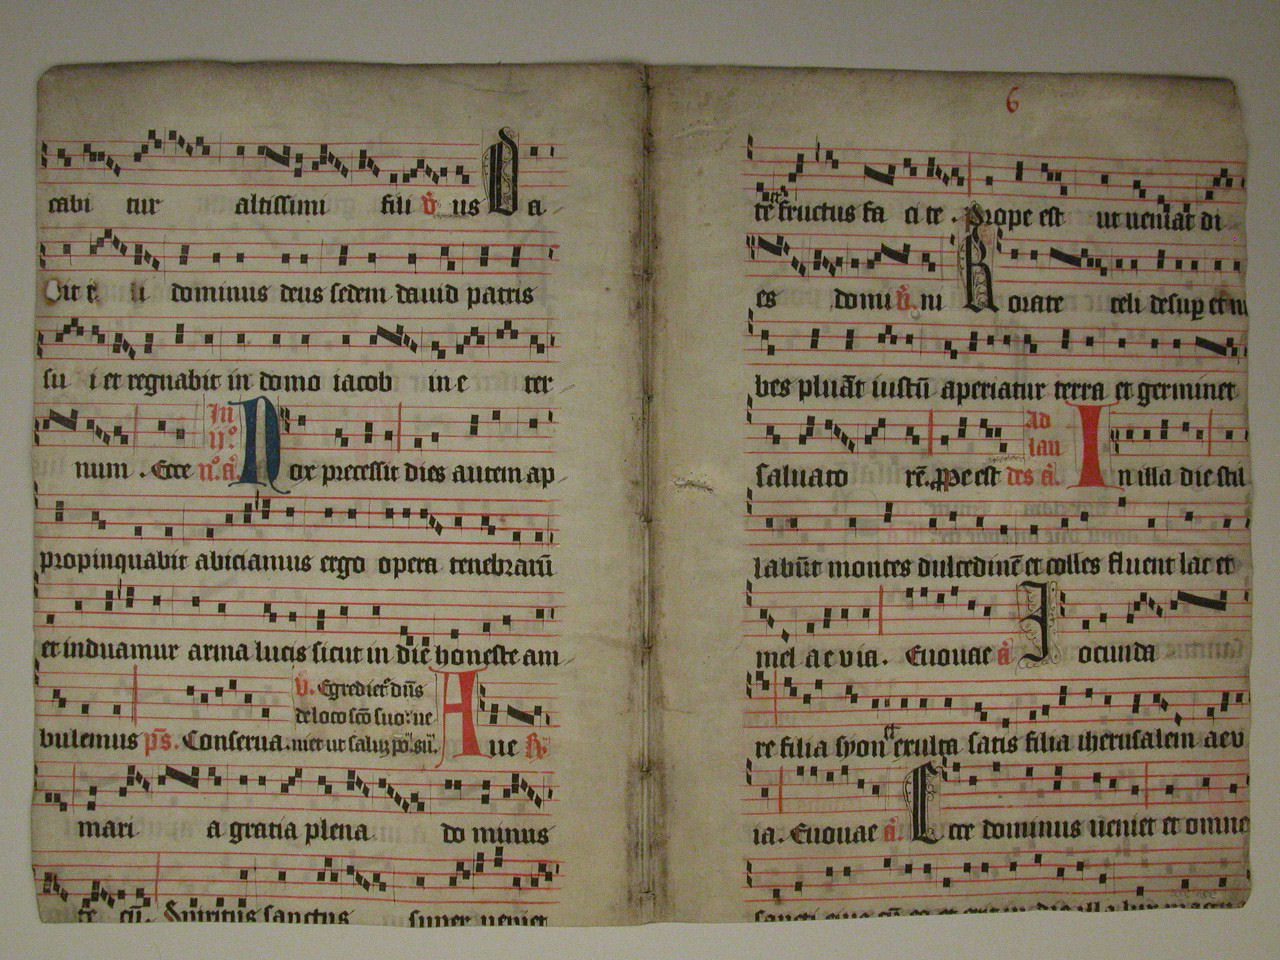 cabi tur altissimi fili v us Da
bit e li dominus deus sedem dauid patris
su i et regnabit in domo iacob in e ter
num . Ecce In ijº n.º a Nox precessit dies autem ap
propinquabit abiciamus ergo opera tenebrarū
et induamur arma lucis sicut in die honeste am
bulemus ps. Conserua. v. Egrediet dn̄s
de loco scō suo: ue
niet ut saluz po. su. Aue R
mari a gratia plena do minus
te cū. Spiritus sanctus super ueniet
6
te fructus fa ci te . Prope est ut ueniat di
es domi v. ni Rorate celi desup et nu
bes pluāt iustū aperiatur terra et germinet
saluato rē. Ppe est Ad lau des a. In illa die stil
labūt montes dulcedinē et colles fluent lac et
mel aeuia. Euouae a Iocunda
re filia syon et exulta satis filia iherusalem aeu
ia. Euouae a. Ecce dominus ueniet et omne
sancti eius cū eo et erit in die illa lux magna